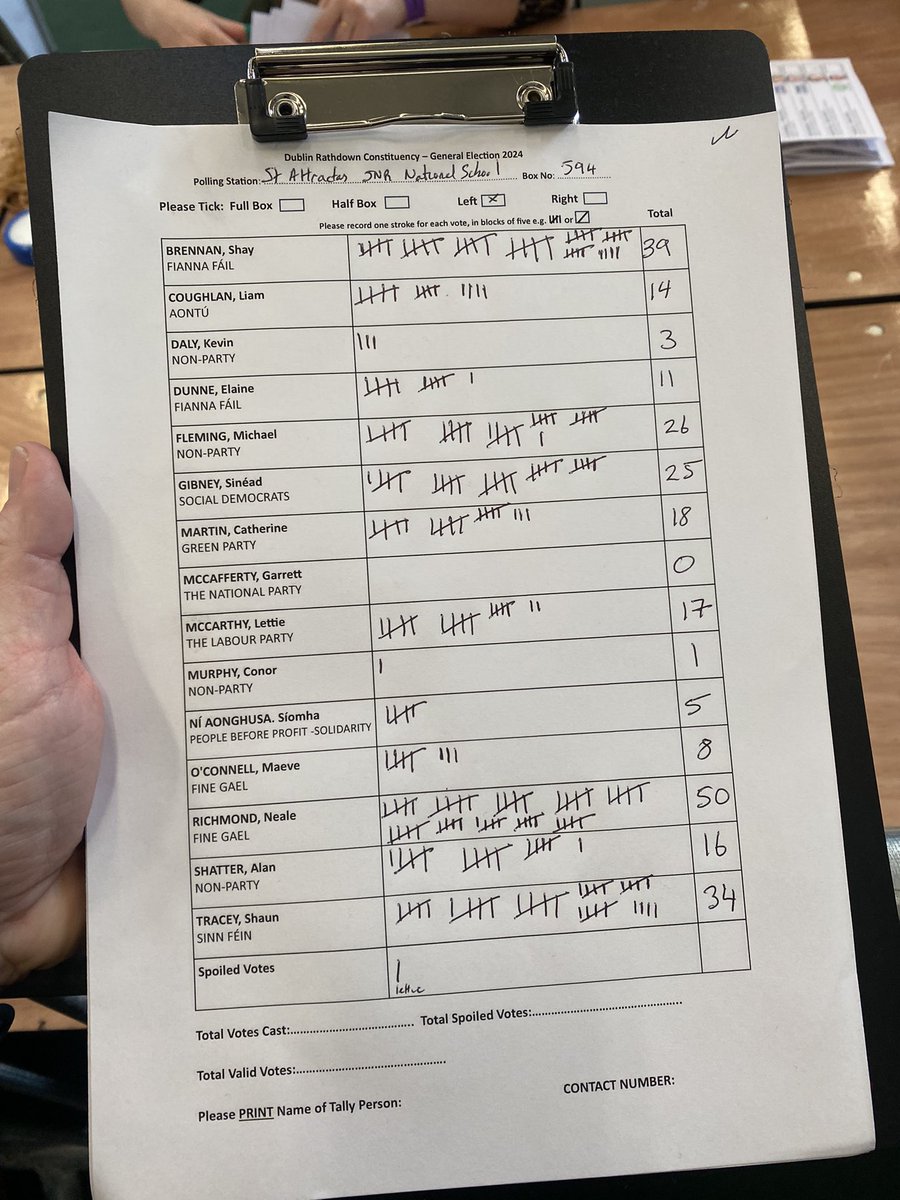 Dublin Rathdown Constituency – General Election 2024
Polling Station: St Attractas JNR National School Box No: 594
Please Tick: Full Box Half Box Left X Right
Please record one stroke for each vote, in blocks of five e.g. or Total
BRENNAN, Shay 39
FIANNA FÁIL
COUGHLAN, Liam 14
AONTÚ
DALY, Kevin 3
NON-PARTY
DUNNE, Elaine 11
FIANNA FÁIL
FLEMING, Michael 26
NON-PARTY
GIBNEY, Sinéad 25
SOCIAL DEMOCRATS
MARTIN, Catherine 18
GREEN PARTY
MCCAFFERTY, Garrett 0
THE NATIONAL PARTY
MCCARTHY, Lettie 17
THE LABOUR PARTY
MURPHY, Conor 1
NON-PARTY
NÍ AONGHUSA. Síomha 5
PEOPLE BEFORE PROFIT -SOLIDARITY
O'CONNELL, Maeve 8
FINE GAEL
RICHMOND, Neale 50
FINE GAEL
SHATTER, Alan 16
NON-PARTY
TRACEY, Shaun 34
SINN FÉIN
Spoiled Votes
Total Votes Cast:.................................... Total Spoiled Votes:............................................
Total Valid Votes:............................................
CONTACT NUMBER:
Please PRINT Name of Tally Person: